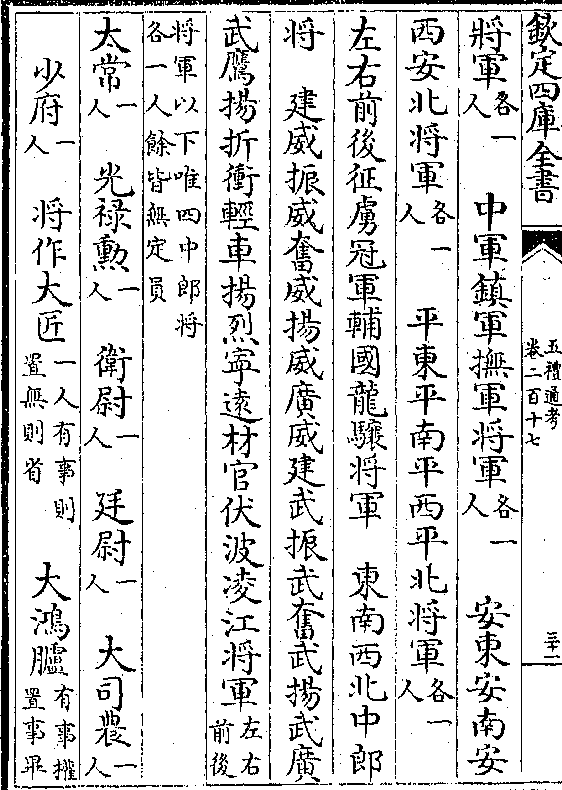 欽定四庫全書
五禮通考
卷二百十七
三十二
將軍各一人 中軍鎮軍撫軍將軍各一人 安東安南安
西安北將軍各一人 平東平南平西平北將軍各一人
左右前後征虜冠軍輔國龍驤將軍 東南西北中郎
將 建威振威奮威揚威廣威建武振武奮武揚武廣
武鷹揚折衝輕車揚烈寧遠材官伏波凌江將軍左右前後
將軍以下唯四中郎將各一人餘皆無定員
太常一人 光禄勲一人 衛尉一人 廷尉一人 大司農一人
少府一人 將作大匠一人有事則置無則省 大鴻臚有事權置事畢